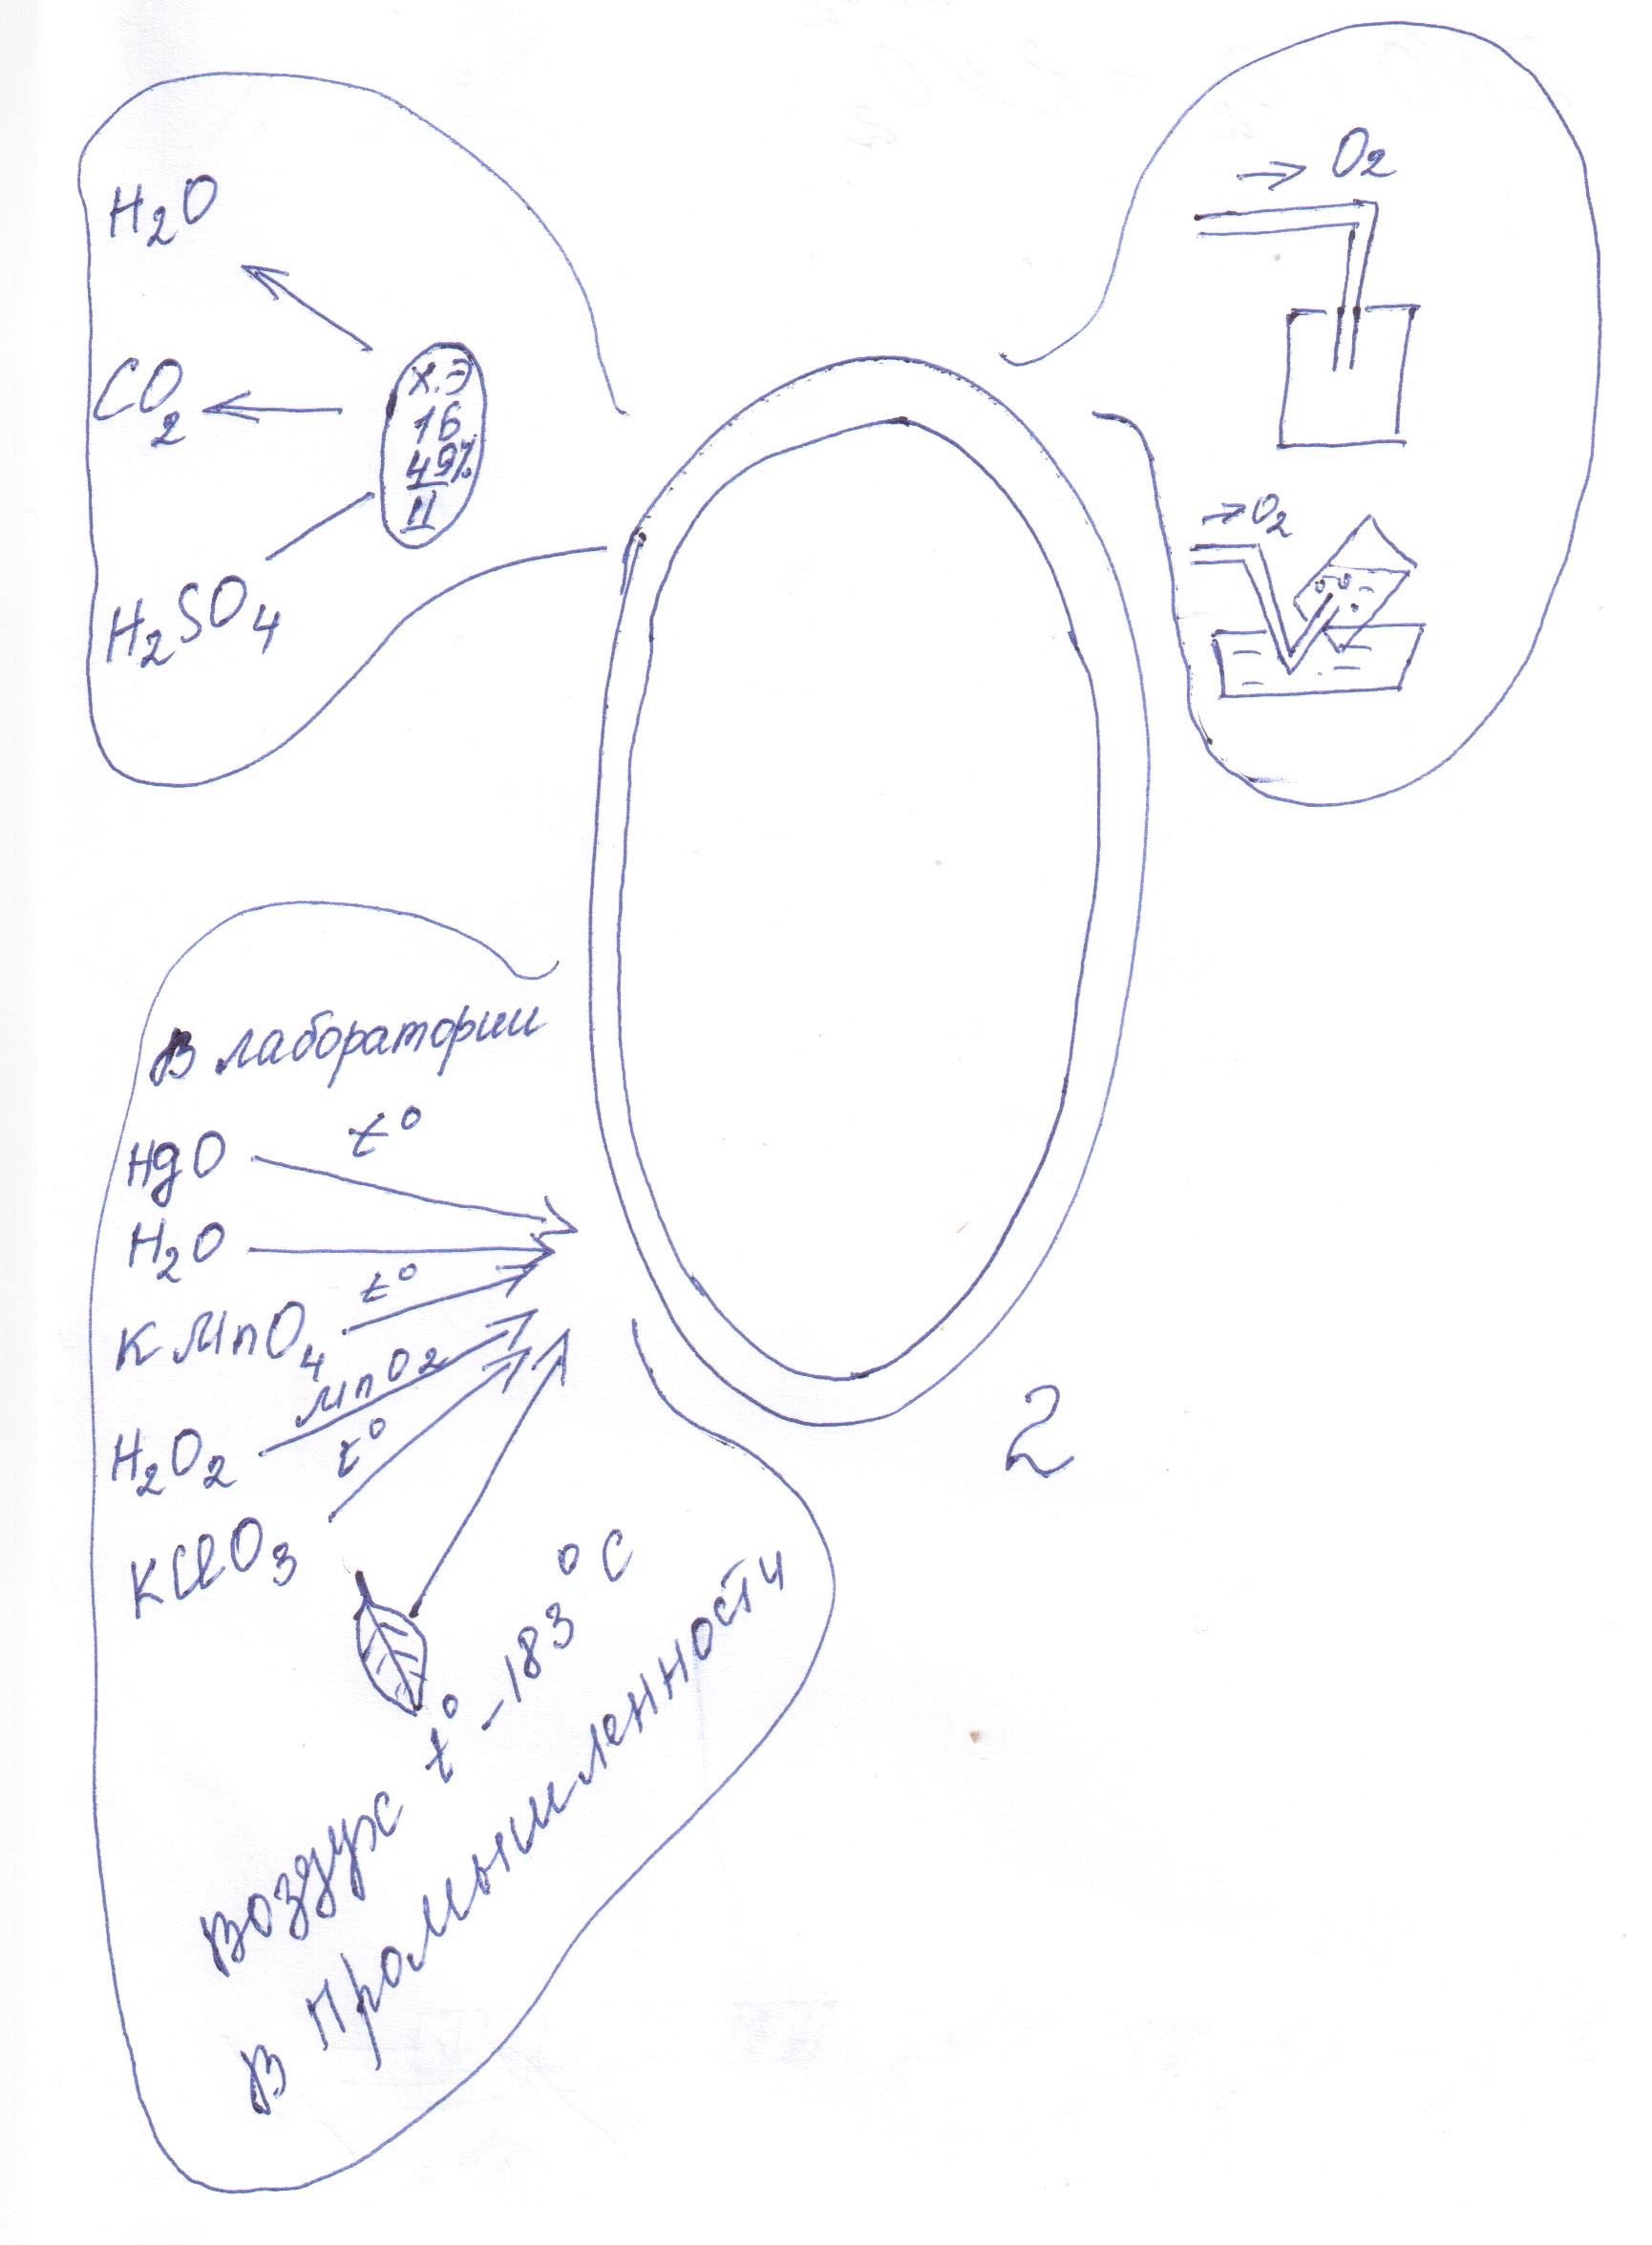 H₂O
CO₂
H₂SO₄
Х.Э
16
49%
II
→ O₂
→ O₂
В лаборатории
HgO t°
H₂O
KMnO₄ t°
H₂O₂ MnO₂
KClO₃ t°
Воздух t° -183°C
В промышленности
O
2